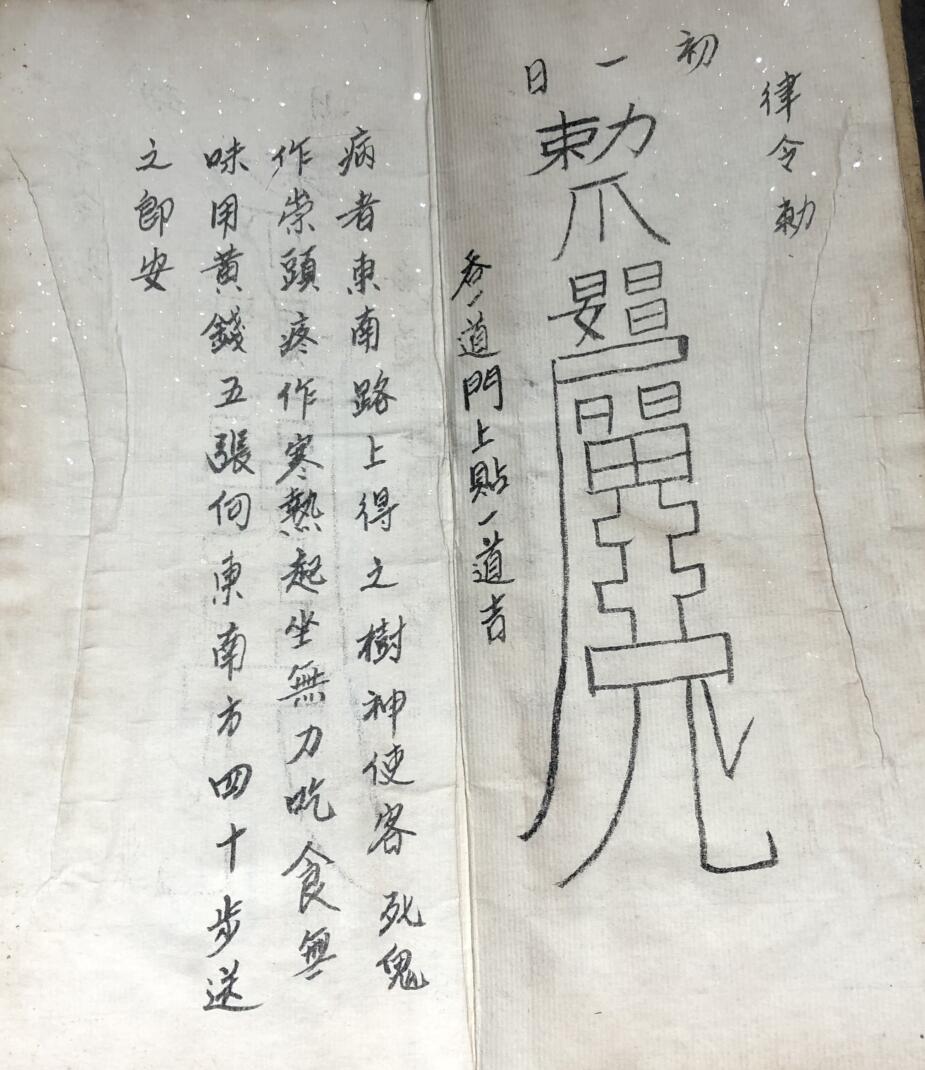 律令勅
初一日
勅
吞一道門上貼一道吉
病者東南路上得之樹神使客死鬼
作祟頭疼作寒熱起坐無力吃食無
味用黄錢五張向東南方四十步送
之即安